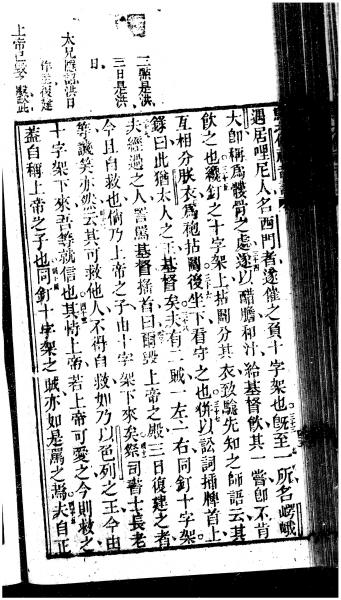 三點是洪、
三日是洪
日。
上帝
遇居哩尼人名西門者遂催之負十字架也既至一所名嶧峨
大卽稱爲髏骨之處遂以醋膽和汁給基督飲其一嘗卽不肯
飲之也釘之十字架上拈鬮分其衣致驗先知之師語云其
互相分朕衣爲袍拈鬮後坐下看守之也倂以訟詞插首上
錄曰此猶太人之王基督矣夫有二賊一左一右同釘十字架
夫經過之人詈罵基督搖首曰爾毀 上帝之殿三日復建之者
今且自救也倘乃上帝之子由十字 架下來矣祭司書士長老
等譏笑亦然云其可救他人不得自救如乃以色列之王今由
十字架下來吾等就信也其恃上帝 若上帝可愛之今則救之
蓋自稱上帝之子也同釘十字架之 賊亦如是罵之焉夫自正